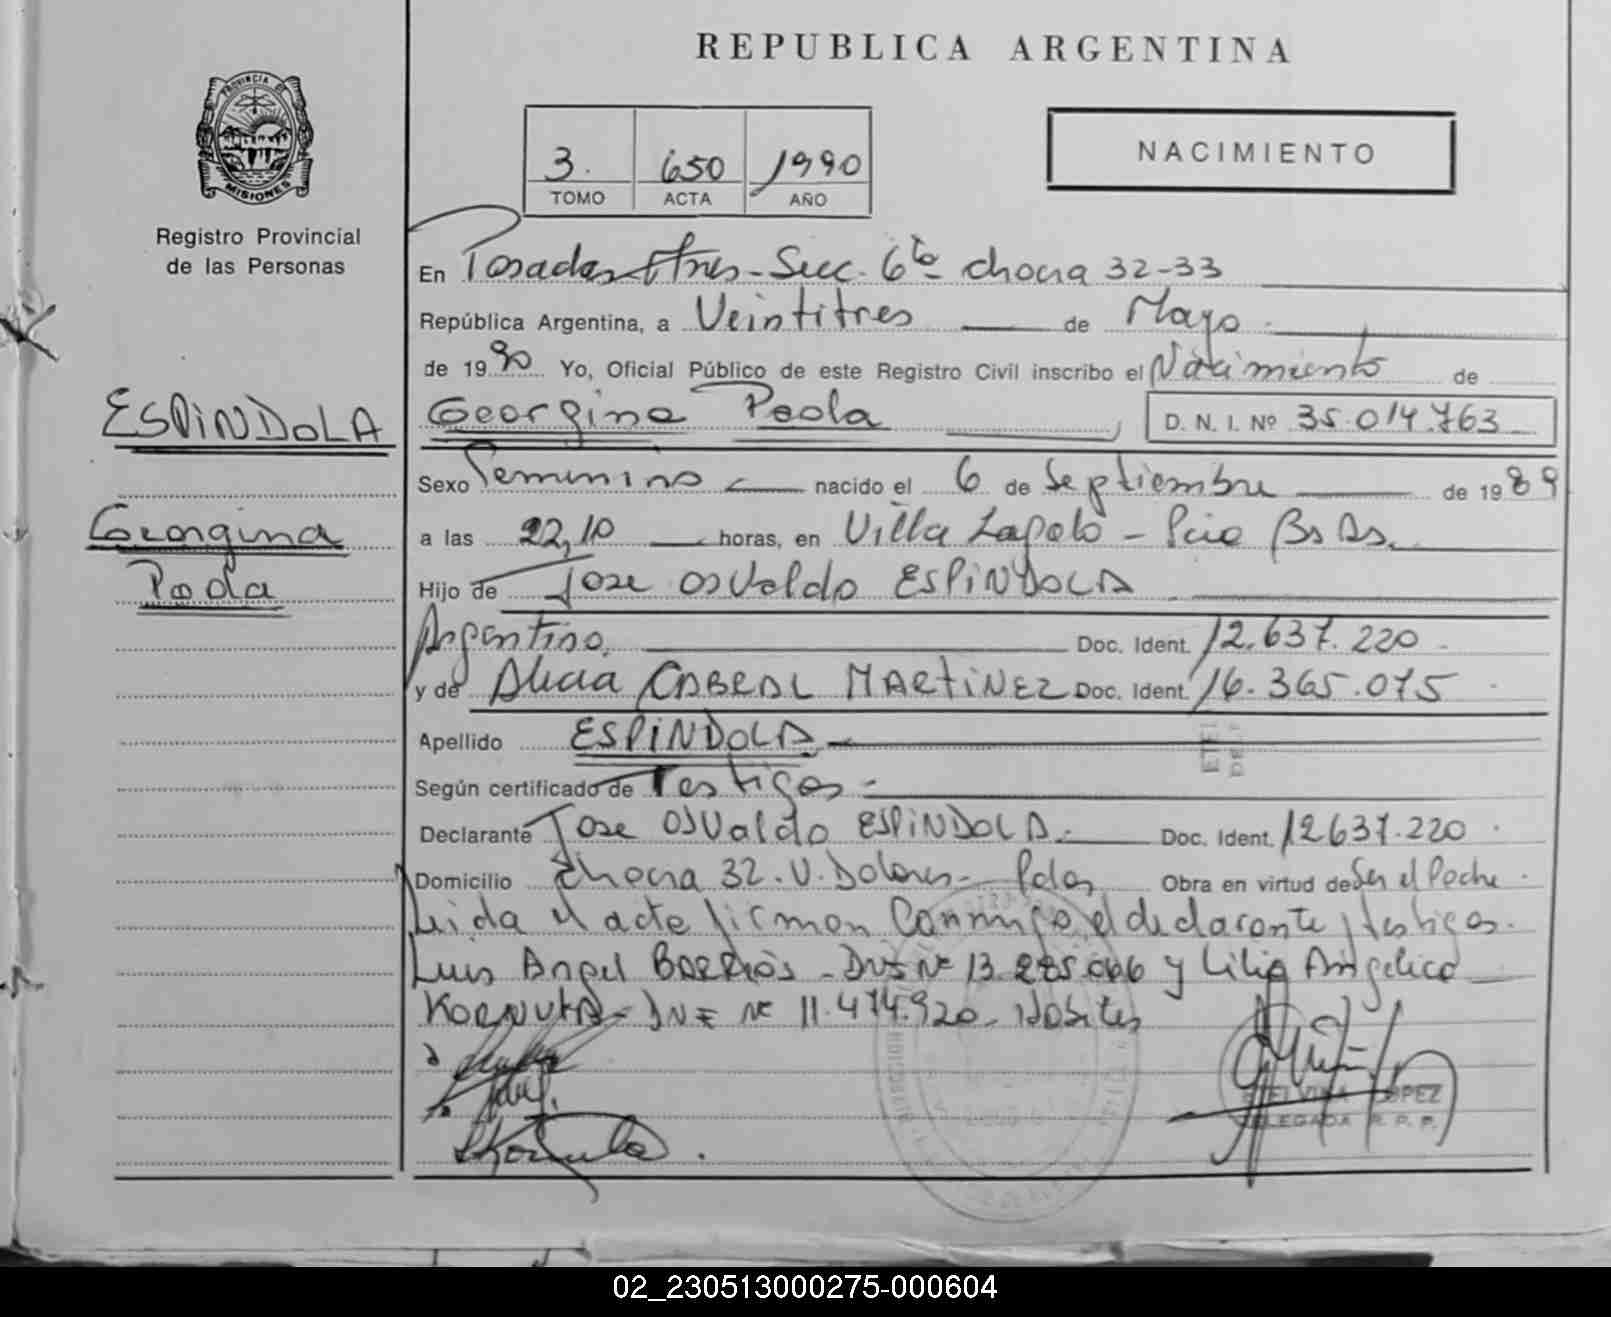 REPUBLICA ARGENTINA
PROVINCIA DE
MISIONES
Registro Provincial
de las Personas
3. 650 1990
TOMO ACTA AÑO
NACIMIENTO
En Posadas Mnes - Secc. 6ta chacra 32-33
República Argentina, a Veintitres de Mayo
de 1990 Yo, Oficial Público de este Registro Civil inscribo el Nacimiento de
ESPINDOLA
Georgina Paola D. N. I. Nº 35.014.763
Sexo Femenino nacido el 6 de Septiembre de 1989
Georgina
Paola
a las 22,10 horas, en Villa Zapolo - Pcia Bs As.
Hijo de Jose Osvaldo ESPINDOLA
Argentino. Doc. Ident. 12.637.220
y de Alicia CABRAL MARTINEZ Doc. Ident. 16.365.075
Apellido ESPINDOLA
Según certificado de Testigos
Declarante Jose Osvaldo ESPINDOLA. Doc. Ident. 12637.220
Domicilio Chacra 32. V. Dolores - Pdas Obra en virtud de Ser el Padre
Leida el acta firman Conmigo el declarante y testigos.
Luis Angel BARRIOS - DNI Nº 13.285.066 y Lilia Angelica
KORNUTA - DNI Nº 11.474.920. Habiles
ELVIRA LOPEZ
DELEGADA R. P. P.
02_230513000275-000604